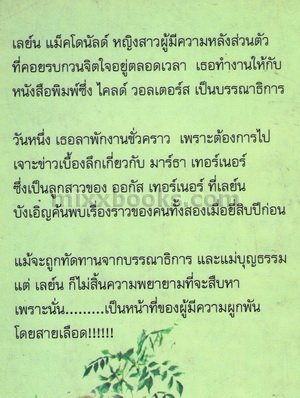 เลย์น แม็คโดนัลด์ หญิงสาวผู้มีความหลังส่วนตัว
ที่คอยรบกวนจิตใจอยู่ตลอดเวลา เธอทำงานให้กับ
หนังสือพิมพ์ซึ่ง ไคลด์ วอลเตอร์ส เป็นบรรณาธิการ
วันหนึ่ง เธอลาพักงานชั่วคราว เพราะต้องการไป
เจาะข่าวเบื้องลึกเกี่ยวกับ มาร์ธา เทอร์เนอร์
ซึ่งเป็นลูกสาวของ ออกัส เทอร์เนอร์ ที่เลย์น
บังเอิญค้นพบเรื่องราวของคนทั้งสองเมื่อยี่สิบปีก่อน
mixxbooks.com
แม้จะถูกทัดทานจากบรรณาธิการ และแม่บุญธรรม
แต่ เลย์น ก็ไม่สิ้นความพยายามที่จะสืบหา
เพราะนั่น.........เป็นหน้าที่ของผู้มีความผูกพัน
โดยสายเลือด!!!!!!